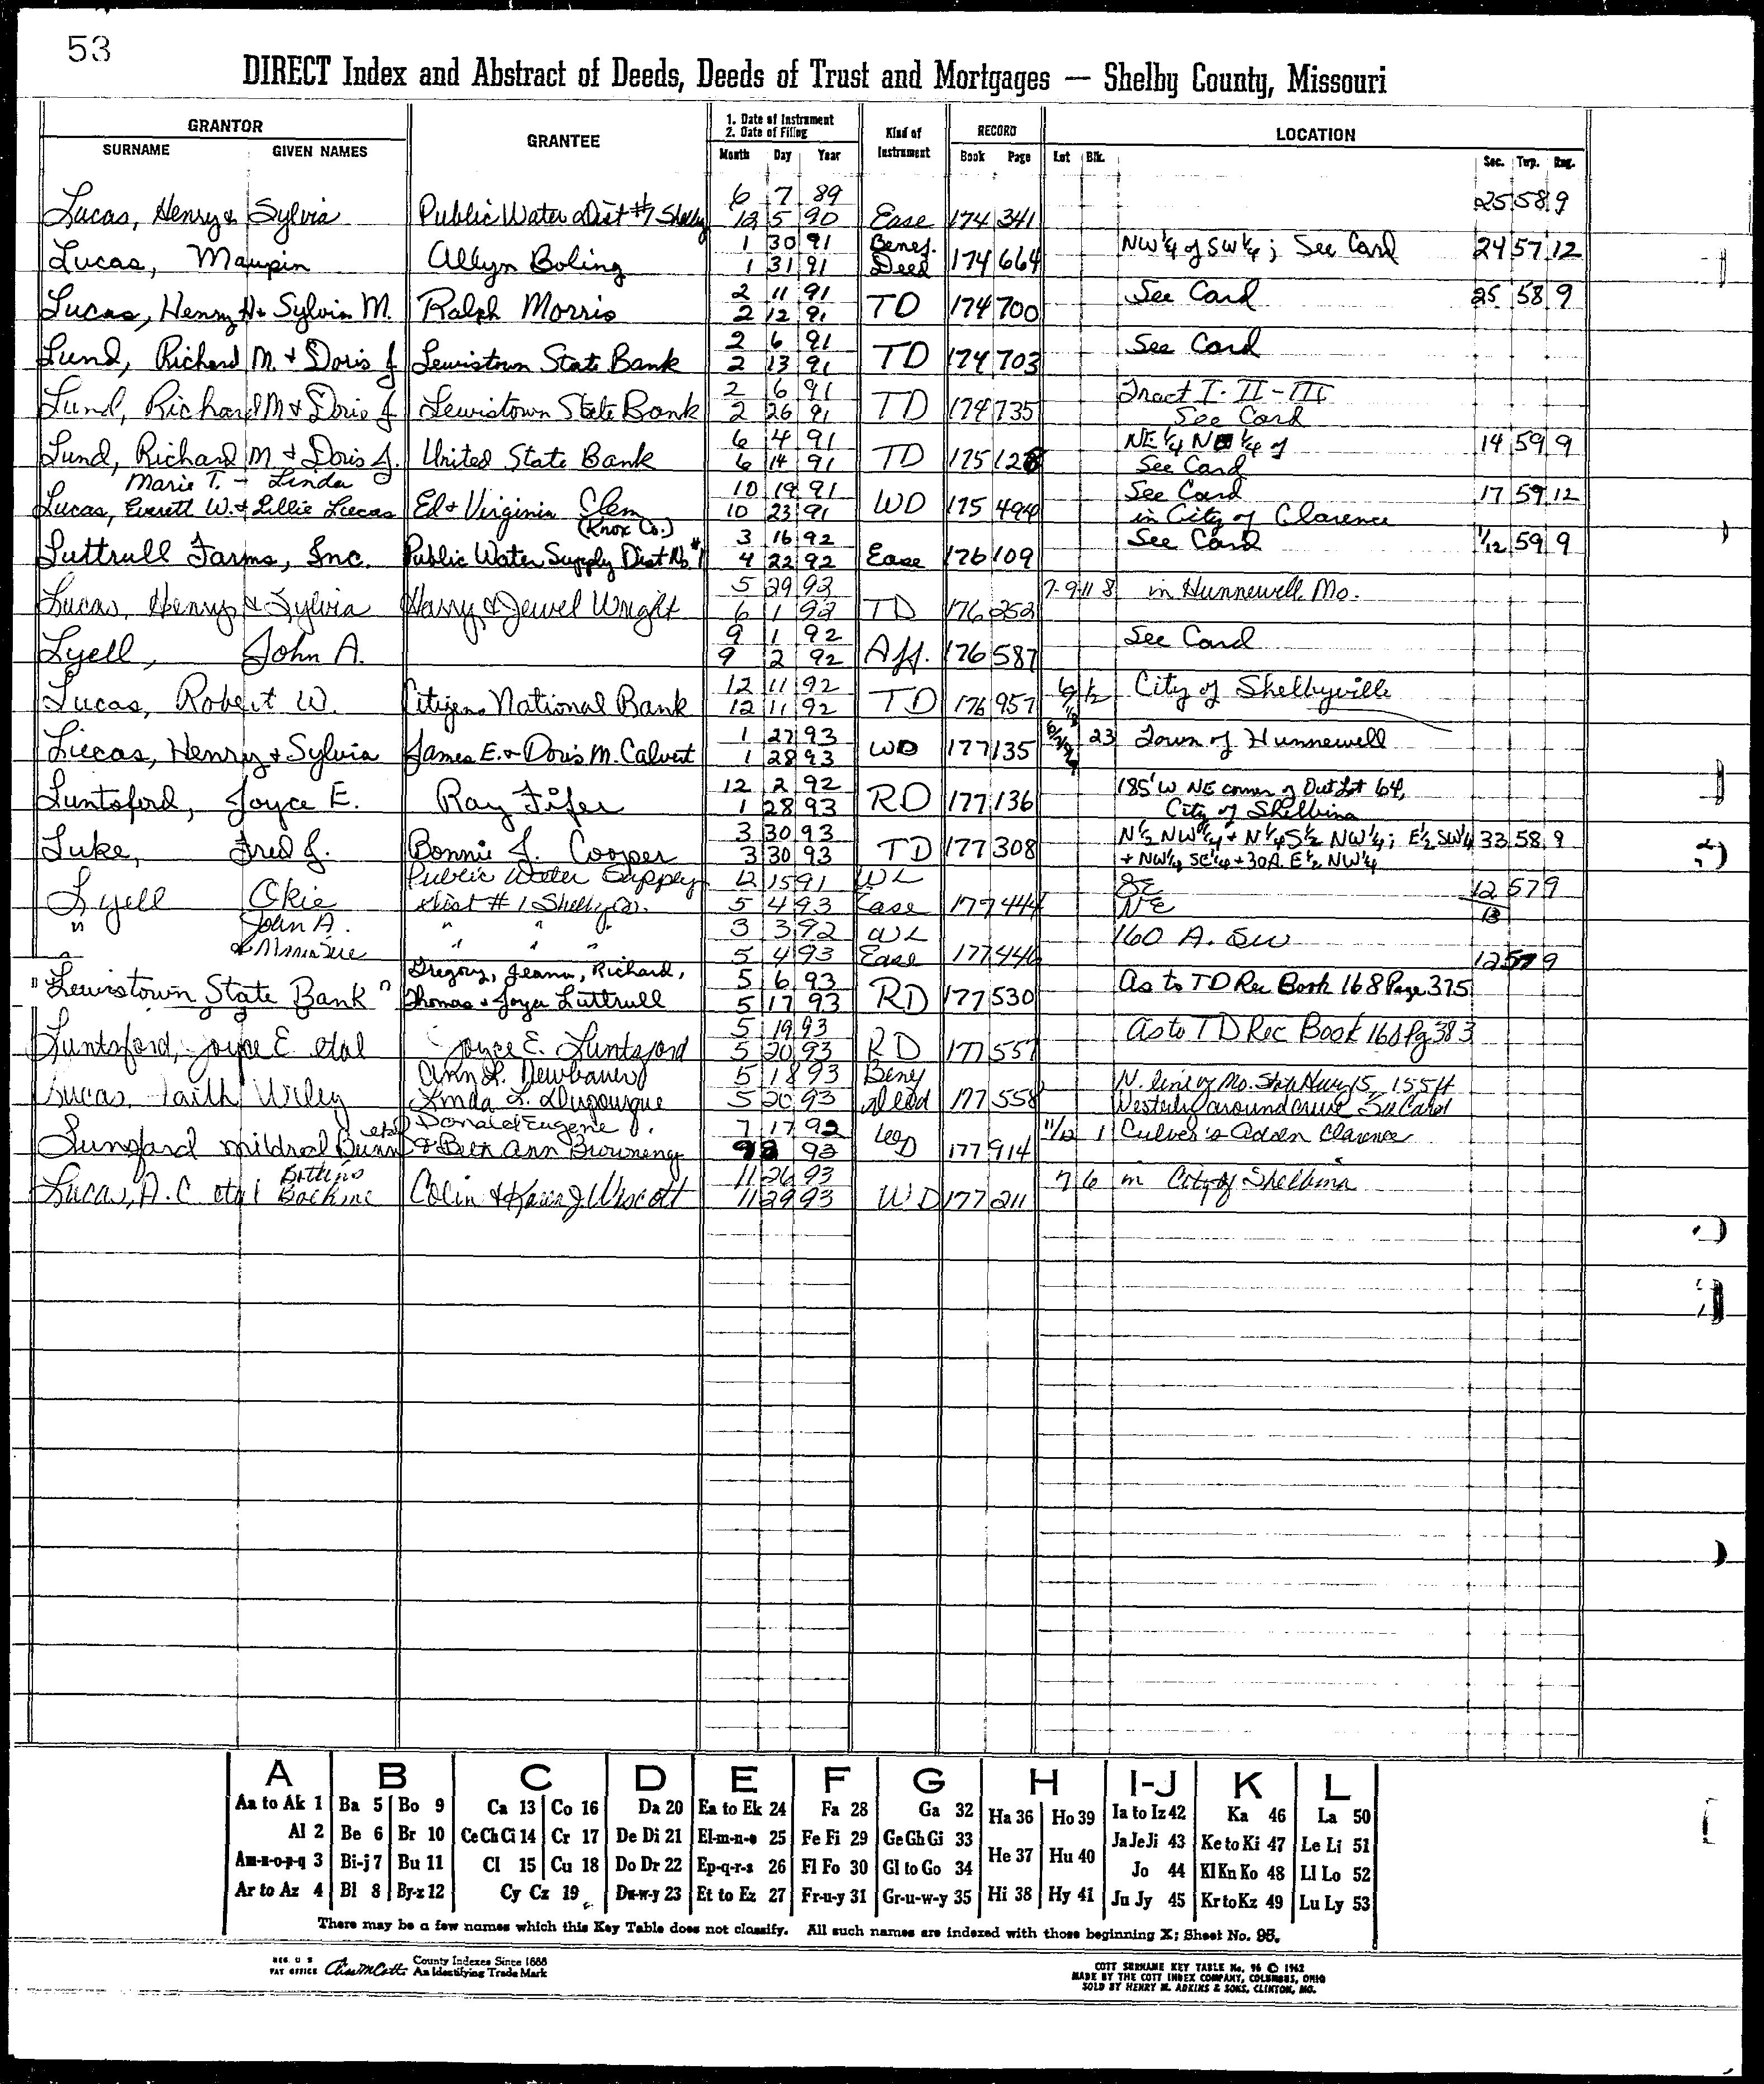 53
DIRECT Index and Abstract of Deeds, Deeds of Trust and Mortgages — Shelby County, Missouri
GRANTOR GRANTEE 1. Date of Instrument 2. Date of Filing Kind of Instrument RECORD LOCATION
SURNAME GIVEN NAMES Month Day Year Book Page Lot Blk. Sec. Twp. Rng.
6 7 89 25 58 9
Lucas, Henry & Sylvia Public Water Dist #1 Shelby 12 5 90 Ease 174 341
1 30 91 Benef. NW 1/4 of SW 1/4; See Card 24 57 12
Lucas, Maupin Allyn Boling 1 31 91 Deed 174 664
2 11 91 See Card 25 58 9
Lucas, Henry H & Sylvia M. Ralph Morris 2 12 91 TD 174 700
2 6 91 See Card
Lund, Richard M. & Doris J Lewistown State Bank 2 13 91 TD 174 703
2 6 91 Tract I - II - III
Lund, Richard M & Doris J Lewistown State Bank 2 26 91 TD 174 735 See Card
6 4 91 NE 1/4 1/4 of 14 59 9
Lund, Richard M & Doris J. United State Bank 6 14 91 TD 175 128 See Card
Marie T. - Linda 10 19 91 See Card 17 59 12
Lucas, Everett W. & Lillie Lucas Ed & Virginia Clem 10 23 91 WD 175 494 in City of Clarence
(Knox Co.) 3 16 92 See Card 1/12 59 9
Luttrull Farms, Inc. Public Water Supply Dist No. #1 4 22 92 Ease 176 109
5 29 93 7-9-11 8 in Hunnewell, Mo.
Lucas, Henry & Sylvia Harry & Jewel Wright 6 1 92 TD 176 252
9 1 92 See Card
Lyell, John A. 9 2 92 Aff. 176 587
12 11 92 City of Shelbyville
Lucas, Robert W. Citizens National Bank 12 11 92 TD 176 957
1 27 93 23 Town of Hunnewell
Lucas, Henry & Sylvia James E. & Doris M. Calvert 1 28 93 WD 177 135
12 2 92 185' W NE corner of Out Lot 64,
Luntsford, Joyce E. Ray Fifer 1 28 93 RD 177 136 City of Shelbina
3 30 93 N 1/2 NW 1/4 & N 1/4 S 1/2 NW 1/4; E 1/2 SW 1/4 33 58 9
Luke, Fred J. Bonnie J. Cooper 3 30 93 TD 177 308 + NW 1/4 SE 1/4 + 30A. E 1/2 NW 1/4
Public Water Supply 12 15 91 WL SE 12 57 9
Lyell Okie Dist #1 Shelby Co. 5 4 93 Ease 177 444 NE 13
" John A. " " " 3 3 92 WL 160 A. SW
5 4 93 Ease 177 446 12 57 9
Gregory, Jeann, Richard, 5 6 93 As to TD Rec Book 168 Page 375
"Lewistown State Bank" Thomas & Joyce Luttrull 5 17 93 RD 177 530
5 19 93 As to TD Rec Book 168 Pg 383
Luntsford, Joyce E etal Joyce E. Luntsford 5 20 93 RD 177 557
Ann L. Newbauer 5 18 93 Benef N. line of Mo. State Hwy 15, 155 ft
Lucas, Faith Wiley Linda L. 5 20 93 Deed 177 558 Westerly around curve See Card
etal Donald Eugene 7 17 92 11/12 1 Culver's Addn Clarence
Mildred Bunn & Beth Ann Browning 93 WD 177 914
11 26 93 7 6 in City of Shelbina
Lucas, A. C etal Colin & 11 29 93 WD 177 211
A B C D E F G H I-J K L
Aa to Ak 1 Ba 5 Bo 9 Ca 13 Co 16 Da 20 Ea to Ek 24 Fa 28 Ga 32 Ha 36 Ho 39 Ia to Iz 42 Ka 46 La 50
Al 2 Be 6 Br 10 Ce Ch Ci 14 Cr 17 De Di 21 El-m-n-o 25 Fe Fi 29 Ge Gh Gi 33 He 37 Hu 40 Ja Je Ji 43 Ke to Ki 47 Le Li 51
Am-n-o-p-q 3 Bi-j 7 Bu 11 Cl 15 Cu 18 Do Dr 22 Ep-q-r-s 26 Fl Fo 30 Gl to Go 34 Jo 44 Kl Kn Ko 48 Ll Lo 52
Ar to Az 4 Bl 8 By-z 12 Cy Cz 19 Du-w-y 23 Et to Ez 27 Fr-u-y 31 Gr-u-w-y 35 Hi 38 Hy 41 Ju Jy 45 Kr to Kz 49 Lu Ly 53
There may be a few names which this Key Table does not classify. All such names are indexed with those beginning X; Sheet No. 95.
REG. U S PAT OFFICE County Indexes Since 1888 An Identifying Trade Mark
COTT SURNAME KEY TABLE No. 96 © 1962
MADE BY THE COTT INDEX COMPANY, COLUMBUS, OHIO
SOLD BY HENRY M. ADKINS & SONS, CLINTON, MO.